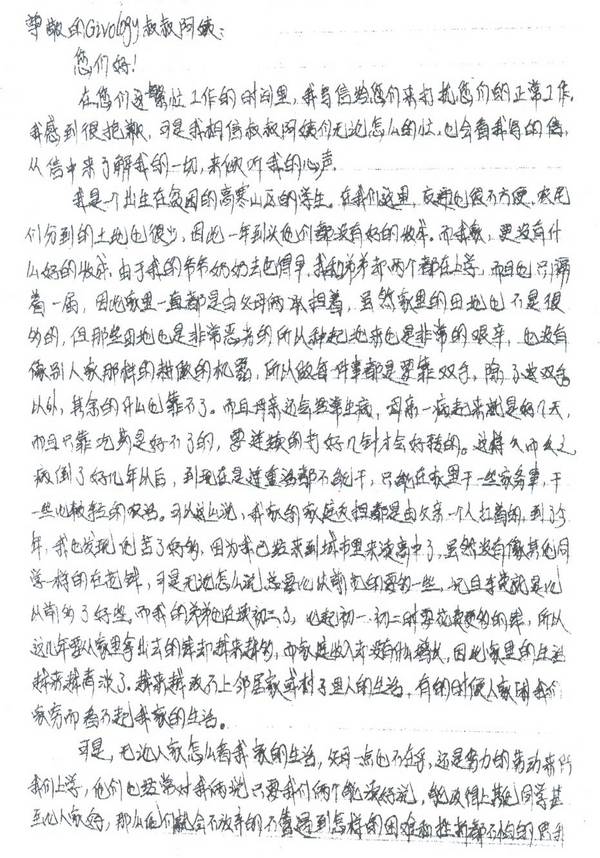 尊敬的Givology叔叔阿姨：
您们好！
在您们这繁忙工作的时间里，我写信给您们来打扰您们的正常工作，
我感到很抱歉，可是我相信叔叔阿姨们无论怎么的忙，也会看我写的信，
从信中来了解我的一切，来倾听我的心声。
我是一个出生在贫困的高寒山区的学生。在我们这里，交通也很不方便，农民
们分到的土地也很少，因此一年到头他们都没有好的收成。而我家，更没有什
么好的收成，由于我的爷爷奶奶去也得早，我和弟弟却两个都在上学，而且也只隔
着一届，因此家里一直都是由父母两承担着，虽然家里的田地也不是很
多的，但那些田地也是非常恶劣的所以种起地来也是非常的艰辛，也没有
像别人家那样的耕做的机器，所以做每一件事都是要靠双手，除了双手
以外，其余的什么也靠不了。而且母亲还会经常生病，母亲一病起来就是好几天，
而且只靠吃药是好不了的，要连续的打好几针才会好转的。这样久而久之
病倒了好几年以后，到现在是连重活都不能干，只能在家里干一些家务事，干
一些比较轻的农活。可以这么说，我家的家庭负担都是由父亲一个人扛着的，到了今
年，我也发现他苦了好多，因为我已经来到城市里来读高中了，虽然没有像其他同
学一样的在花钱，可是无论怎么说总要比从前花的要多一些，况且学费就是比
从前多了好些。而我的弟弟也在读初三了，比起初一初二时要花费更多的钱，所以
这几年要从家里拿出去的钱却越来越多，而家庭收入却没有什么增长，因此家里的生活
越来越清淡了。越来越跟不上邻居家或村子里人的生活，有的时候人家因我们
家穷而看不起我家的生活。
可是，无论人家怎么看我家的生活，父母一点也不在乎，还是努力的劳动来供
我们上学，他们也经常对我俩说：只要我们俩个能读好书，能及得上其他同学甚
至比人家好，那么他们就会不放弃的不管遇到怎样的困难和挫折都不怕的